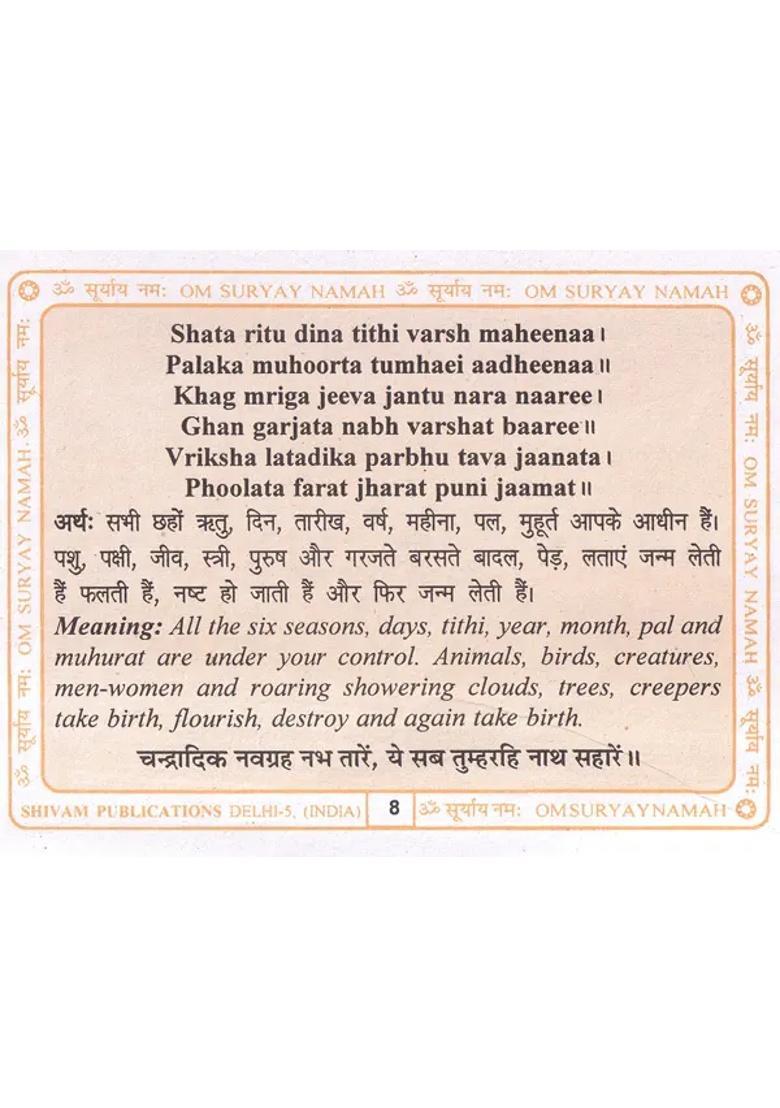 ॐ सूर्याय नम: OM SURYAY NAMAH ॐ सूर्याय नम: OM SURYAY NAMAH
Shata ritu dina tithi varsh maheenaa।
Palaka muhoorta tumhaei aadheenaa॥
Khag mriga jeeva jantu nara naaree।
Ghan garjata nabh varshat baaree॥
Vriksha latadika parbhu tava jaanata।
Phoolata farat jharat puni jaamat॥
अर्थ: सभी छहों ऋतु, दिन, तारीख, वर्ष, महीना, पल, मुहूर्त आपके आधीन हैं।
पशु, पक्षी, जीव, स्त्री, पुरुष और गरजते बरसते बादल, पेड़, लताएं जन्म लेती
हैं फलती हैं, नष्ट हो जाती हैं और फिर जन्म लेती हैं।
Meaning: All the six seasons, days, tithi, year, month, pal and
muhurat are under your control. Animals, birds, creatures,
men-women and roaring showering clouds, trees, creepers
take birth, flourish, destroy and again take birth.
चन्द्रादिक नवग्रह नभ तारें, ये सब तुम्हरहि नाथ सहारें॥
ॐ सूर्याय नम: OM SURYAY NAMAH ॐ सूर्याय नम:
ॐ सूर्याय नम: OM SURYAY NAMAH ॐ सूर्याय नम:
SHIVAM PUBLICATIONS DELHI-5, (INDIA) 8 ॐ सूर्याय नम: OM SURYAY NAMAH